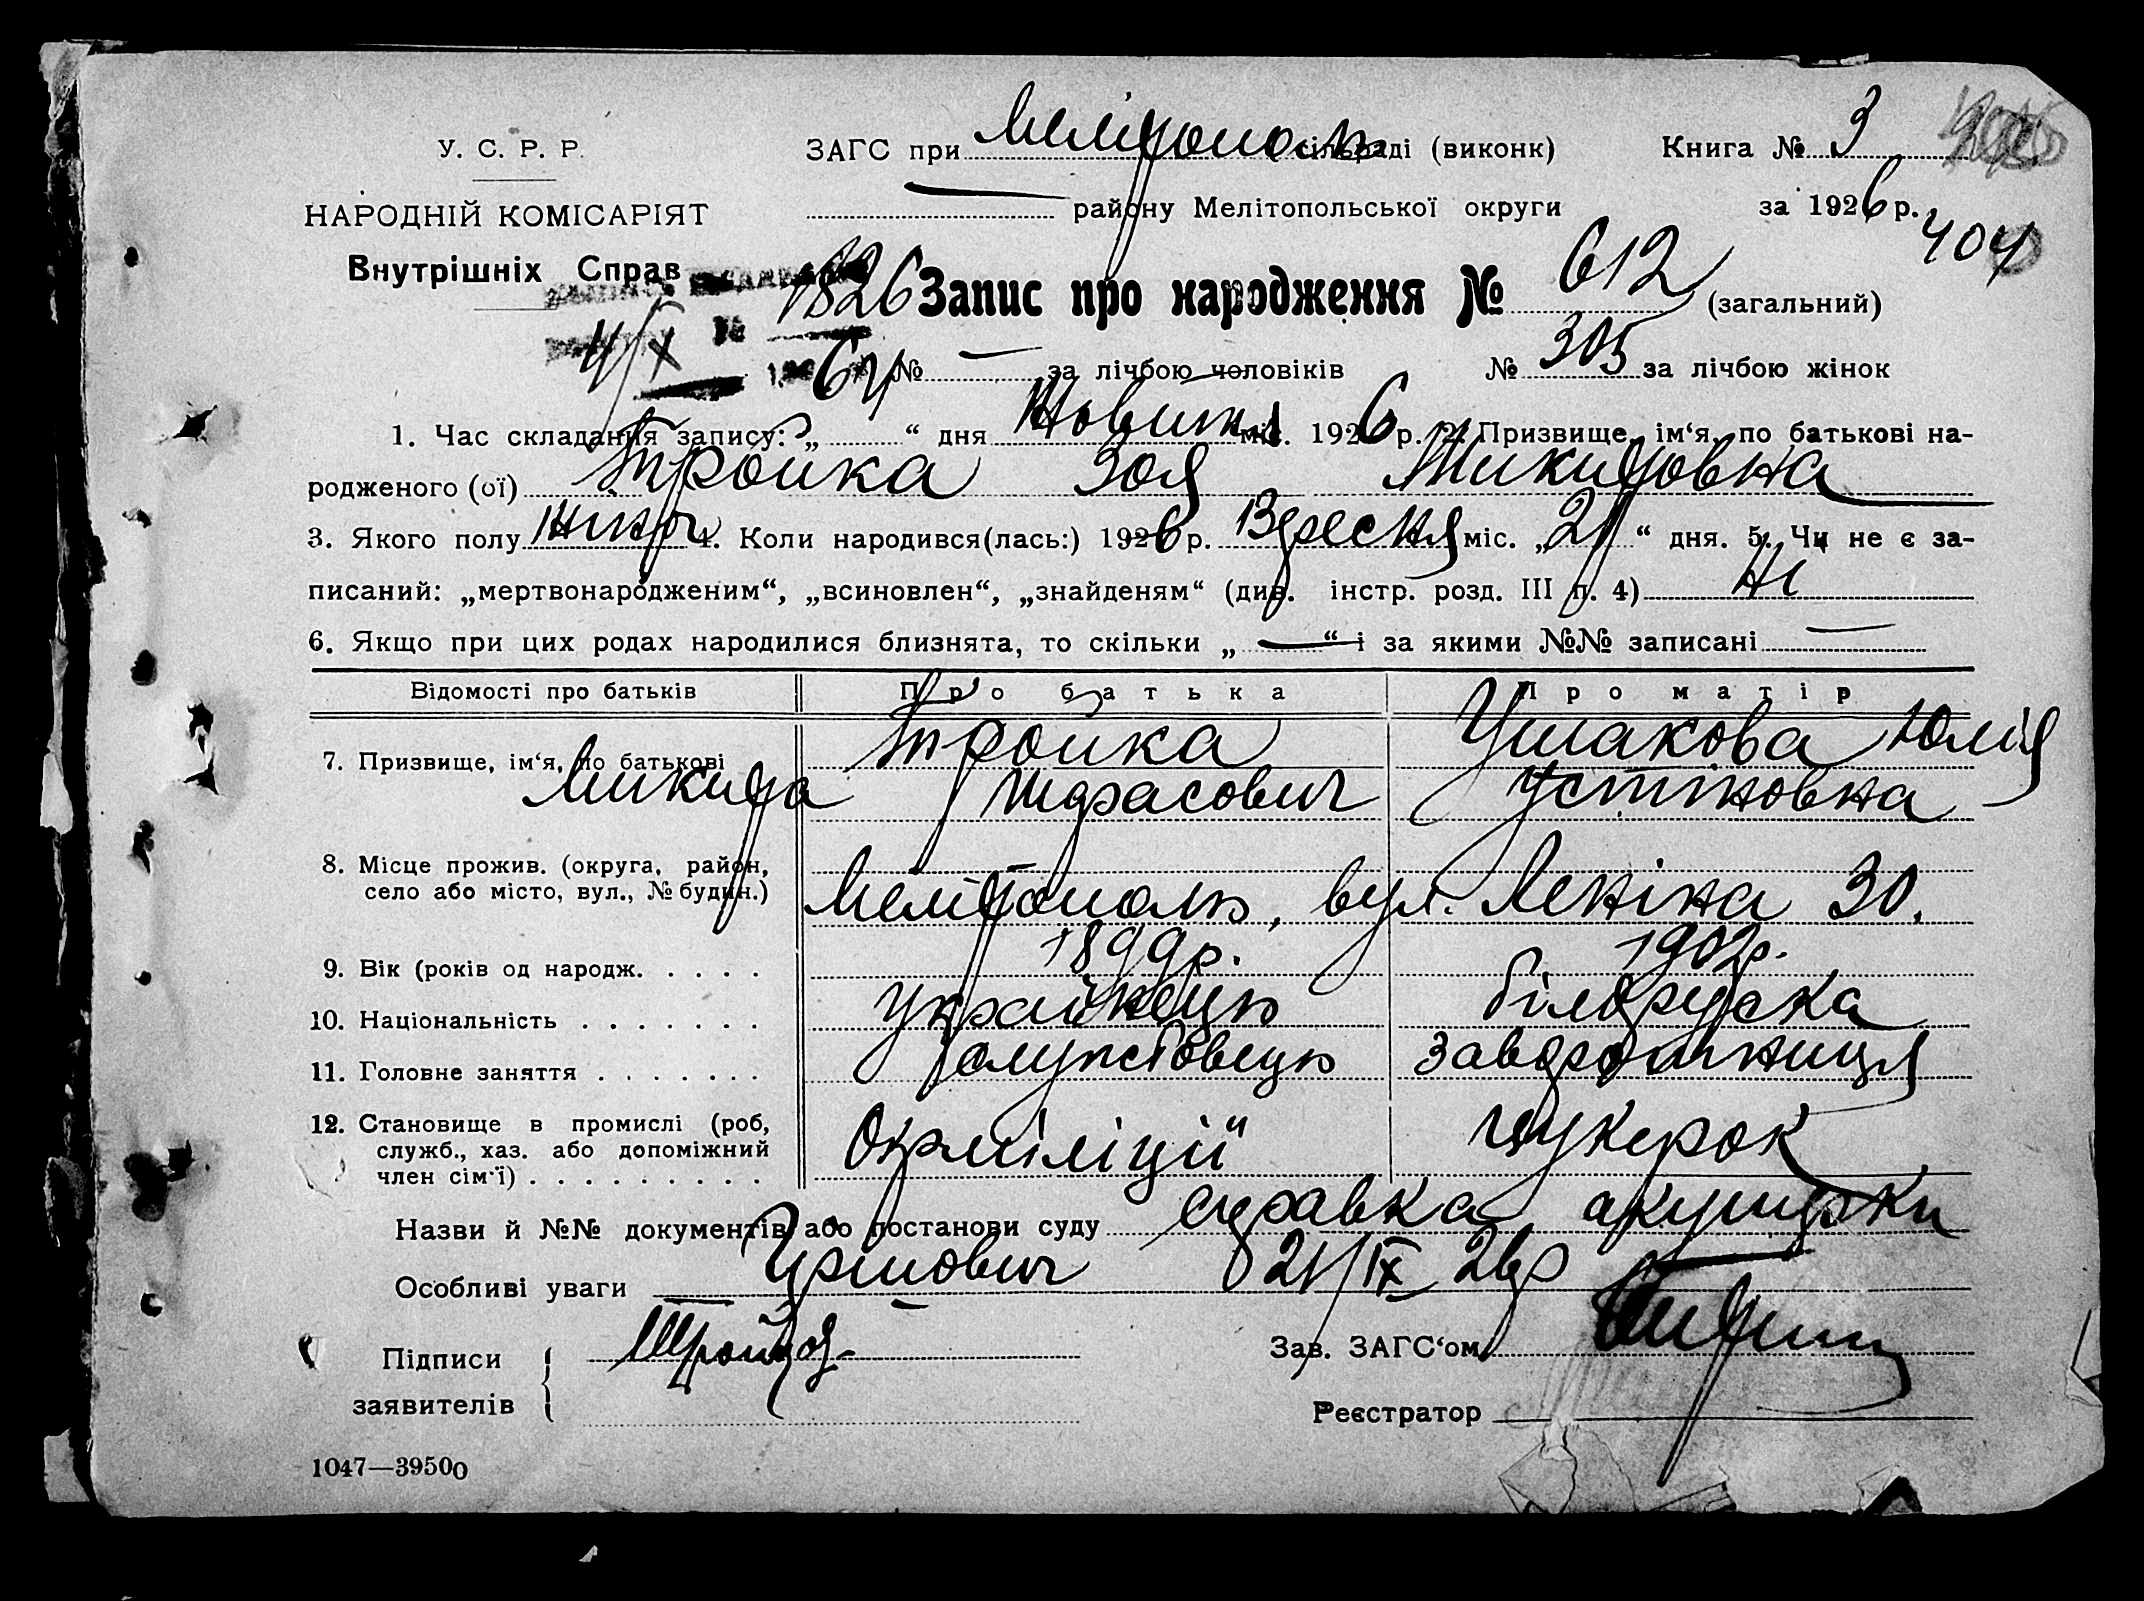 У. С. Р. Р.
ЗАГС при Мелітополь сільраді (виконк)
Книга № 3
НАРОДНІЙ КОМІСАРІЯТ
— району Мелітопольської округи
за 1926 р.
404
Внутрішніх Справ
1826
Запис про народження № 612 (загальний)
4/X
№ — за лічбою чоловіків № 305 за лічбою жінок
1. Час складання запису: „ 4 “ дня Жовтня міс. 1926 р. 2. Призвище, ім‘я, по батькові на-
родженого (ої) Тройка Зоя Микитовна
3. Якого полу жіноч 4. Коли народився(лась:) 1926 р. Вересня міс. „ 21 “ дня. 5. Чи не є за-
писаний: „мертвонародженим“, „всиновлен“, „знайденям“ (див. інстр. розд. III п. 4) Ні
6. Якщо при цих родах народилися близнята, то скільки „ — “ і за якими №№ записані —
Відомості про батьків Про батька Про матір
7. Призвище, ім‘я, по батькові Тройка Ушакова Юлія
Микита Тарасович Устіновна
8. Місце прожив. (округа, район,
село або місто, вул., № будин.) Мелітополь, вул. Леніна 30.
9. Вік (років од народж. . . . . 1899р. 1902р.
10. Національність . . . . . . . Українець білоруска
11. Головне заняття . . . . . . . службовець
12. Становище в промислі (роб,
служб., хаз. або допоміжний
член сім‘ї) . . . . . . . . . Окрміліції цукерок
Назви й №№ документів або постанови суду справка акушерки
Особливі уваги 21/IX 26р
Підписи
заявителів
Зав. ЗАГС‘ом
Реєстратор
1047—39500